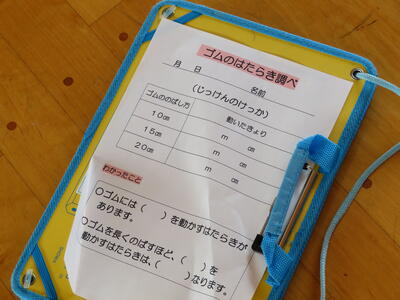 ゴムのはたらき調べ
月 日 名前
(じっけんのけっか)
ゴムののばし方 動いたきょり
10㎝ m ㎝
15㎝ m ㎝
20㎝ m ㎝
わかったこと
○ゴムには( )を動かすはたらきが
あります。
○ゴムを長くのばすほど、( )を
動かすはたらきは、( )なります。